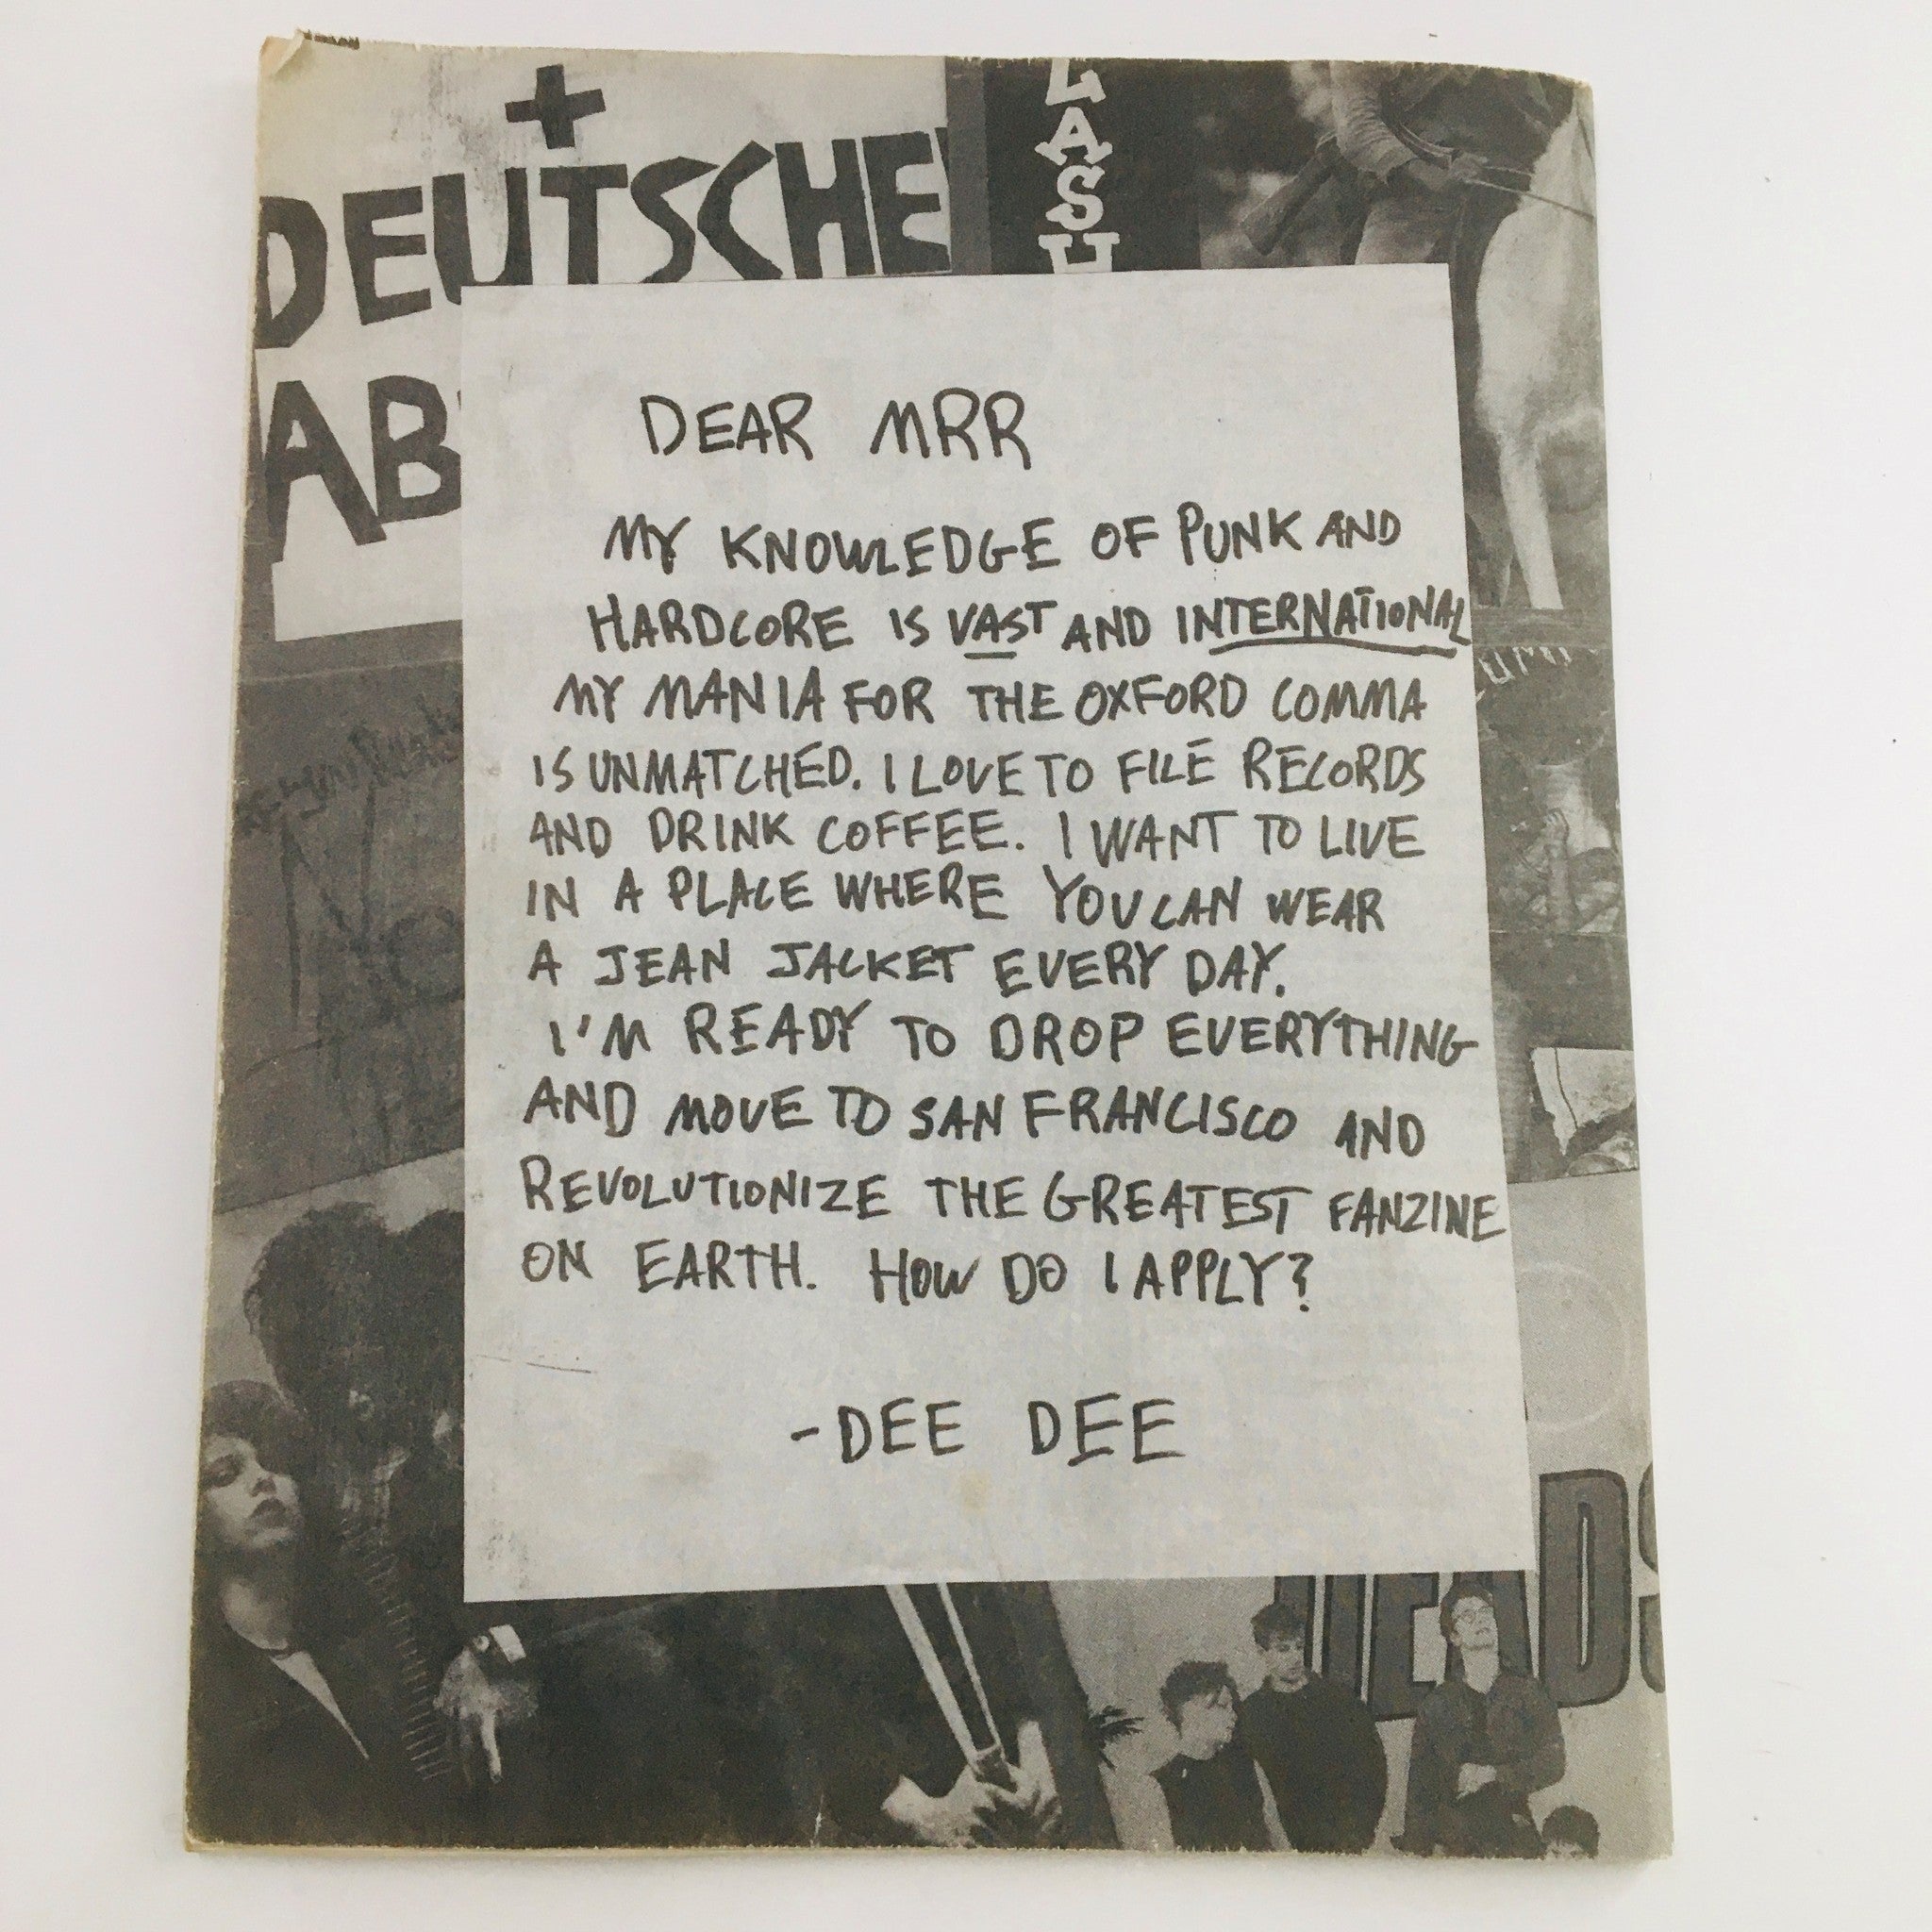 DEUTSCHE
AB
LASH
DEAR MRR
MY KNOWLEDGE OF PUNK AND
HARDCORE IS VAST AND INTERNATIONAL
MY MANIA FOR THE OXFORD COMMA
IS UNMATCHED. I LOVE TO FILE RECORDS
AND DRINK COFFEE. I WANT TO LIVE
IN A PLACE WHERE YOU CAN WEAR
A JEAN JACKET EVERY DAY.
I'M READY TO DROP EVERYTHING
AND MOVE TO SAN FRANCISCO AND
REVOLUTIONIZE THE GREATEST FANZINE
ON EARTH. HOW DO I APPLY?
-DEE DEE
NO
HEADS